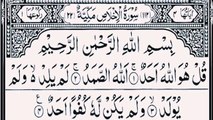 سُوْرَةُ الْاِخْلَاصِ مَكِّيَّةٌ
بِسْمِ اللهِ الرَّحْمٰنِ الرَّحِيْمِ
قُلْ هُوَ اللهُ اَحَدٌ ۝١ اَللهُ الصَّمَدُ ۝٢ لَمْ يَلِدْ ۙ وَلَمْ
يُوْلَدْ ۝٣ وَلَمْ يَكُنْ لَّهٗ كُفُوًا اَحَدٌ ۝٤